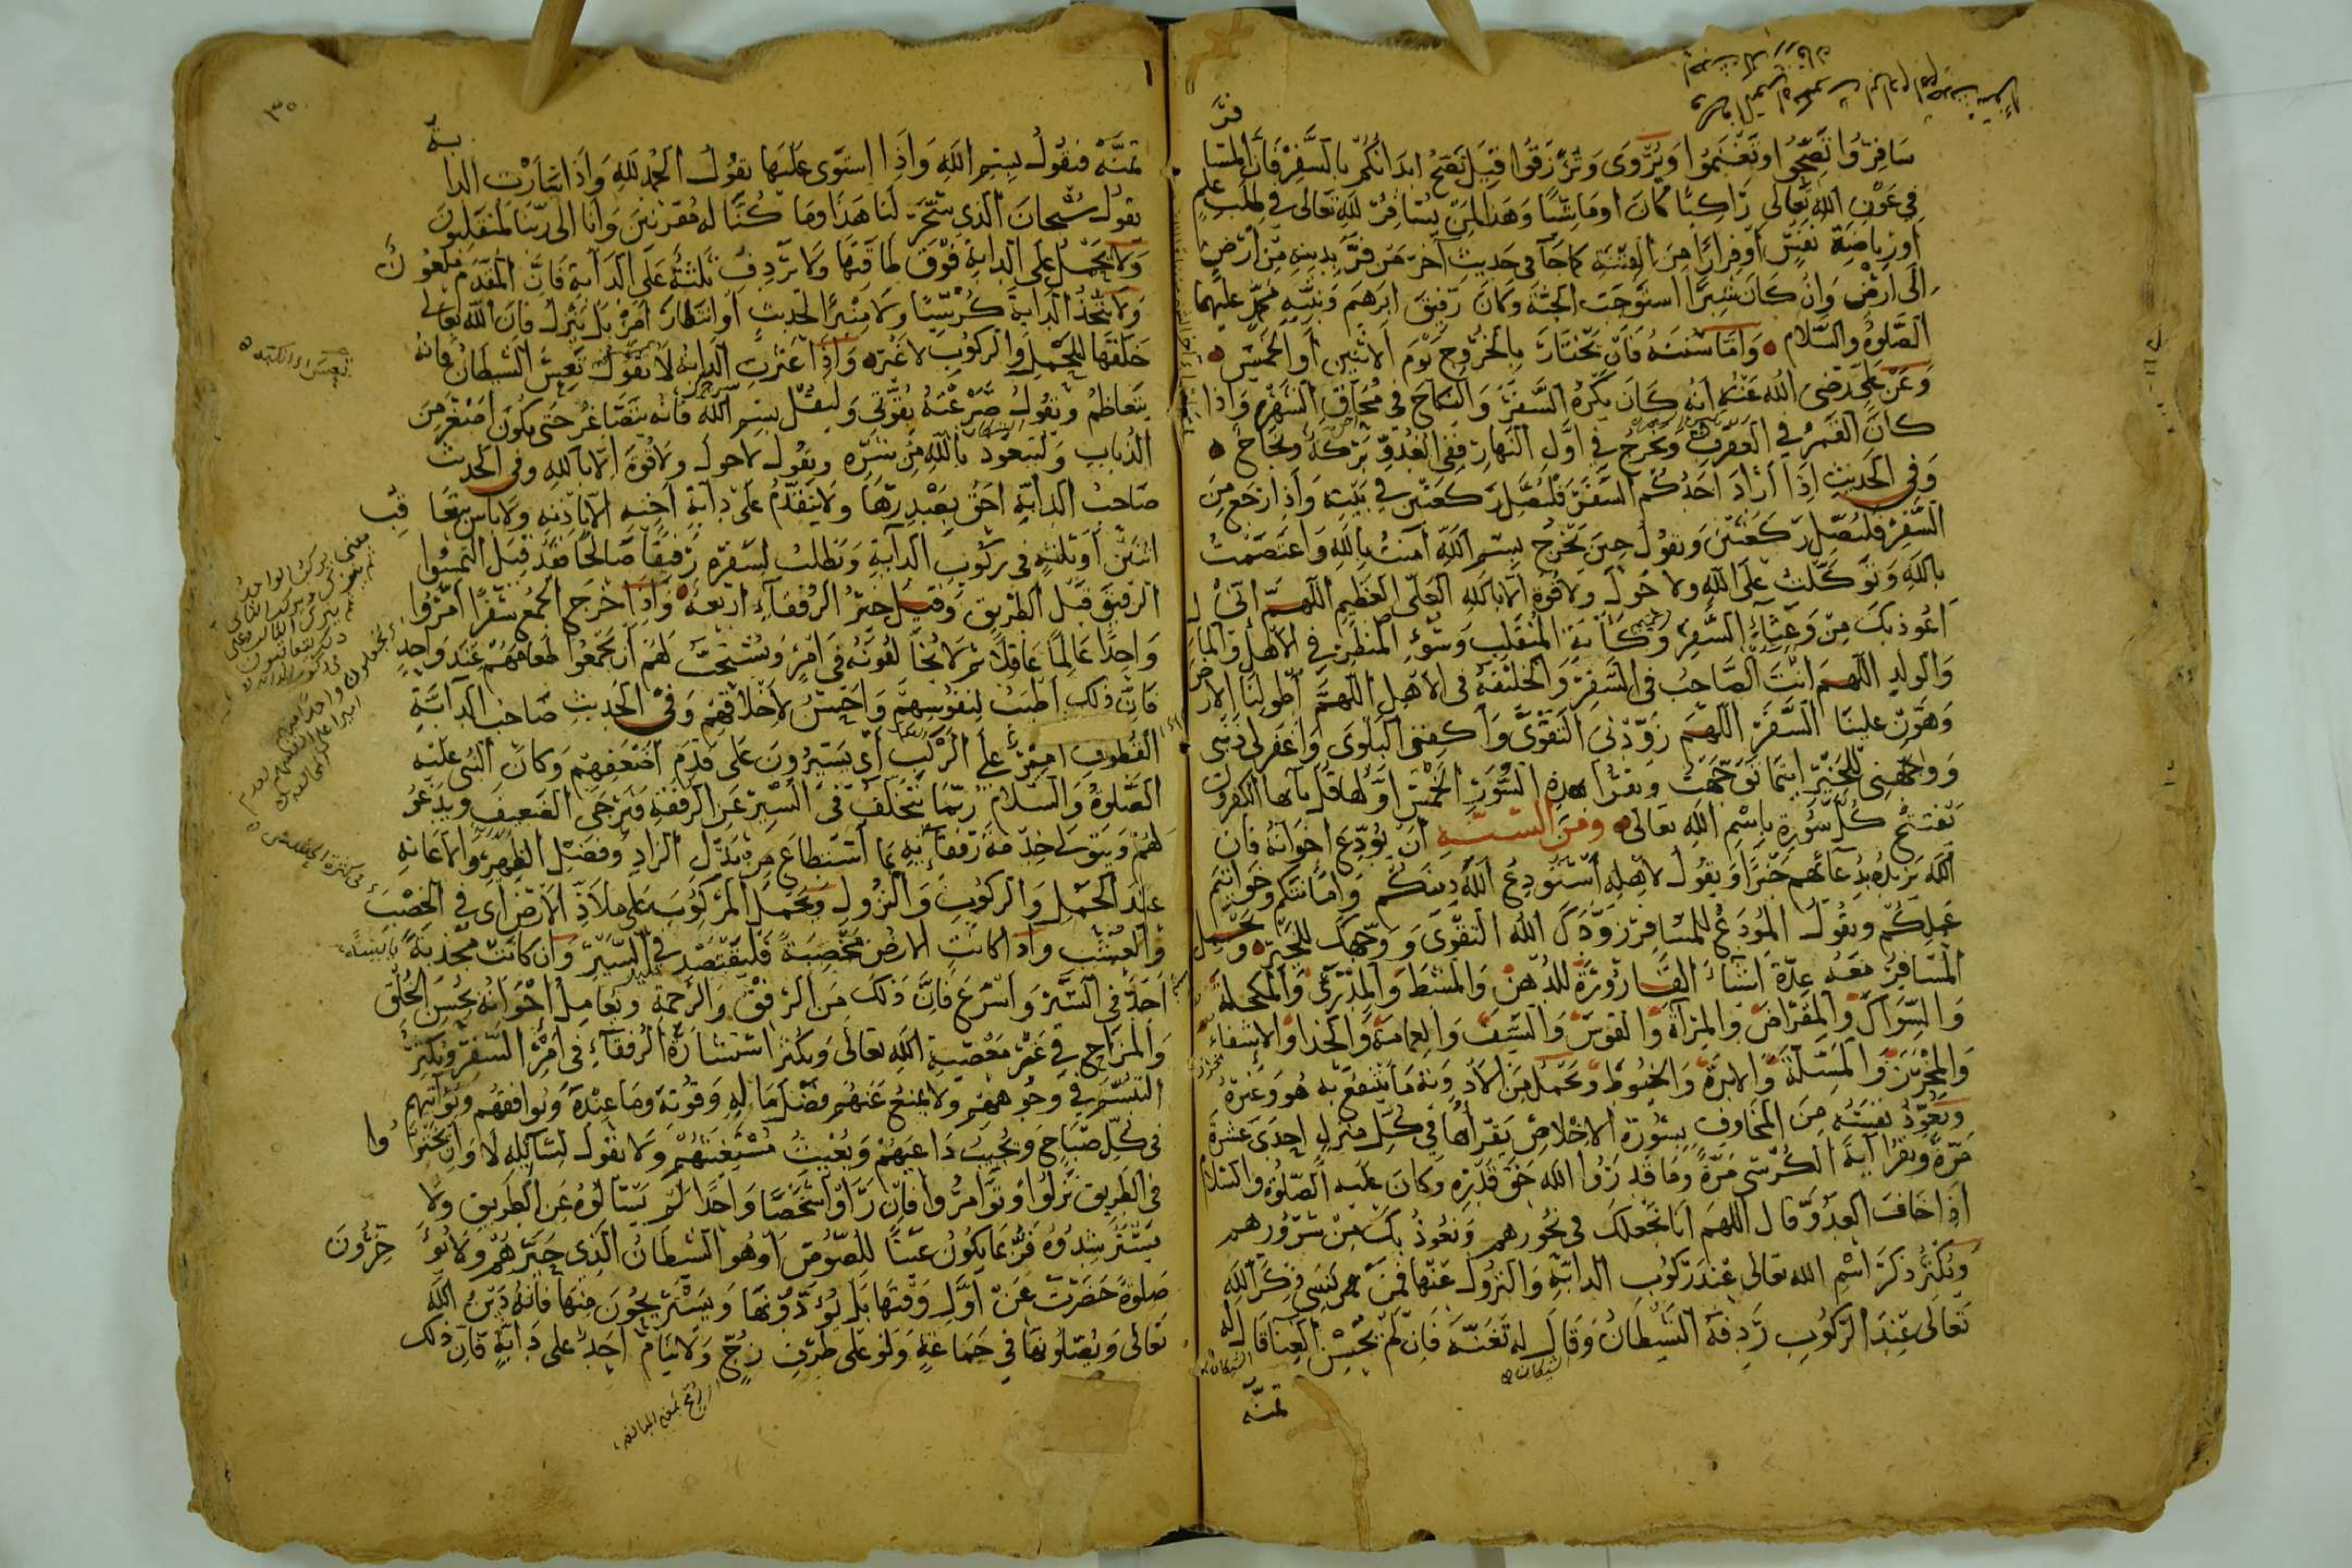 سَافِرُوا تَصِحُّوا وتَغْنَمُوا وَيُرْوَى وَتُرْزَقُوا قِيلَ تَصِحُّ ابدَانُكُم بِالسَّفَرِ فَاَنَّ المُسَا
فِرَ
فِي عَوْنِ اللهِ تَعَالَى رَاكِبًا كَانَ اَومَاشِيًا وَهَذا لِمَنْ يُسَافِرُ لِلّهِ تَعَالَى فِي طَلَبِ عِلْمٍ
اَورِيَاضَةِ نَفْسٍ اَوفِرَارًا مِنَ الفِتْنَةِ كما جَآ فى حَدِيثٍ آخرَ مَن فَرَّ بِدِينِهِ مِنْ اَرْضٍ
اِلَى اَرْضٍ وَاِنْ كَانَ شِبْرًا اسْتَوْجَبَ الجَنَّةَ وَكَانَ رَفِيقَ ابرَهِيمَ وَنَبِيِّهِ مُحَمَّدٍ عَلَيهِمَا
الصَّلوةُ والسَّلام وَاَمَّا سُنَنُهُ فَاَنْ يَخْتَارَ بِالخُرُوجِ يَوْمَ الاِثْنَينِ اَوِ الخَمِيسِ
وَعَنْ عَلِيٍّ رَضِىَ اللهُ عَنْهُ اَنَّهُ كَانَ يَكْرَهُ السَّفَرَ وَالنِّكَاحَ فِي مُحَاقِ الشَّهْرِ وَاذا
كَانَ القَمَرُ فى العَقْرَبِ وَيَخْرُجُ فِي اَوَّلِ النَّهَارِ فَفِى الغُدُوِّ بَرَكَةٌ وَنَجَاحٌ
وَفِى الحَدِيثِ اِذَا اَرَادَ اَحَدُكُم السَّفَرَ فَلْيُصَلِّ رَكعَتَيْنِ فِي بَيْتِهِ وَاِذا رَجَعَ مِنَ
السَّفَرِ فَليُصَلِّ رَكعَتَيْنِ وَيقُولُ حِينَ يَخْرُجُ بِسْمِ اللّهِ آمَنْتُ بِاللهِ وَاعتَصَمْتُ
بِاللّهِ وَتَوَكَّلتُ عَلَى اللهِ ولا حَولَ وَلاقُوَّةَ اِلّا بِاللهِ العَلِىِّ العَظِيمِ اللّهُمَّ اِنّى
اَعُوذ بِكَ مِنْ وَعْثَاءِ السَّفَرِ وَكَآبَةِ المُنْقَلَبِ وَسُوْءِ المَنْظَرِ فى الاَهْلِ وَالمَالِ
وَالوَلَدِ اللهُمَّ اَنْتَ الصَّاحِبُ فى السَّفَرِ وَالخَلِيْفَةُ فى الاَهْلِ اللهُمَّ اطْوِ لَنَا الاَرْضَ
وَهَوِّنْ عَلَيْنَا السَّفَرَ اللّهمَّ زَوِّدْنِى التَّقْوَى وَاكفِنِى البَلْوَى وَاغفِرلى ذَنْبِى
وَوَجِّهْنِى لِلخَيْرِ اَيْنَمَا تَوَجَّهْتُ ويقرَأُ هذِهِ السُّوَرَ الخَمْسَ اَوَّلُهَا قُل يآيها الكفرون
يَفْتَتِحُ كُلَّ سُورَةٍ بِاسْمِ اللهِ تعَالَى وَمِنَ السُّنَّةِ اَنْ يُوَدِّعَ اِخوَانَهُ فَاِنَّ
اللهَ يَزِيدُهُ بِدُعَآئِهِم خَيْرًا وَيقُولُ لاَهْلِهِ اَسْتَودِعُ اللّهَ دِينَكُمْ وَاَمَانَتَكُم وخَوَاتِيمَ
عَمَلِكُم ويقُولُ المُوَدِّعُ لِلْمُسَافِرِ زَوَّدَكَ اللهُ التَّقْوَى وَوَجَّهَكَ لِلخَيْرِ وَيَحْمِلُ
المُسَافِرُ مَعَهُ عِدَّةَ اَشْيَاءَ القَارُوْرَةُ لِلدُّهْنِ وَالمُشْطَ وَالمِدْرَى وَالمُكْحلَةَ
وَالسِّوَاكَ وَالمِقْرَاضَ والمِرْآةَ وَالقَوسَ وَالسَّيفَ وَالعِمَامَةَ وَالحِذَا وَالاِشفَاءَ
وَالمِخْرَزَ وَالمِسَلَّةَ وَالاِبرَةَ وَالخُيُوطَ وَيَحْمِلُ مِنَ الاَدْوِيَةِ مَا يَنْتَفِعُ بِهِ هُوَ وَغَيْرُهُ
وَيُعَوِّذُ نَفْسَهُ مِنَ المَخَاوِفِ بِسُورَةِ الاِخْلاَصِ يَقْرَأُهَا فِي كُلِّ مَنْزِلٍ اِحْدَى عَشْرَةَ
مَرَّةً وَيقرَأُ آيَةَ الكُرْسِى مَرَّةً وَمَا قَدَرُوا اللهَ حَقَّ قَدْرِهِ وكَانَ عَلَيهِ الصَّلوةُ والسَّلامُ
اِذَا خَافَ العَدُوَّ قَالَ اَللّهُمَّ اِنَّا نَجْعَلُكَ فى نُحُورِهِم وَنَعُوذُ بِكَ مِنْ شُرُوْرِهِم
وَيُكْثِرُ ذِكرَ اسْمِ اللهِ تعَالى عِنْدَ رُكُوبِ الدَابَّةِ وَالنُّزُولِ عَنْهَا فَمَنْ نَسِىَ ذِكرَ اللهِ
تَعَالى عِنْدَ الرُّكُوبِ رَدِفَهُ الشَّيْطَانُ وَقَالَ لَهُ تَغَنَّهْ فَاِنْ لَمْ يُحْسِنِ الغِنَا قَالَ لَهُ
الشيطان
الشيطان
تمنَّه
٣٥
تَمَنَّهْ فيقُولُ بِسْمِ اللّهِ وَاذا اسْتَوى عَلَيْهَا يقُولُ الحَمْدُ لِلّهِ وَاِذَا سَارَتِ الدَا
بةُ
يقولُ سُبْحَانَ الَّذِى سَخَّرَ لَنَا هَذَا وَمَا كُنَّا لَهُ مُقْرِنِينَ وَاِنَّا اِلَى رَبِّنَا لَمُنْقَلِبُونَ
وَلاَ يَحْمِلُ عَلَى الدَابَّةِ فَوْقَ طَاقَتِهَا وَلاَ يَرْدِفُ ثَلثَةٌ عَلَى الدَآبَةِ فَاِنَّ المُقَدَّمَ مَلْعُونٌ
وَلاَ يَتَّخِذُ الدَابَّةَ كُرْسِيًّا وَلاَ مِنْبَرًا لِحَدِيثٍ اَوِ انْتِظَارَ اَمْرٍ بَلْ يَنْزِلُ فَاِنَّ اللهَ تعَالى
خَلَقَهَا لِلْحَمْلِ والرُّكُوبِ لاَ غَيْرَ وَاِذَا عَثَرَتِ الدَابَّةُ لاَ يَقُولُ تَعِسَ الشَّيطَانُ فَاِنَّهُ
يَتَعَاظَمُ وَيقُولُ صَرَعْتُهُ بِقُوَّتِى وَليَقُلْ بِسمِ اللّهِ فَاِنَّهُ يَتَصَاغَرُ حَتَّى يَكُونَ اَصْغَرَ مِنَ
الذُّبَابِ وَلْيَتَعَوَّذْ بِاللّهِ مِنْ شَرِّهِ ويقُولُ لاَحولَ ولاَقُوَّةَ اِلّا بِاللهِ وَفى الحَدِيثِ
صَاحِبُ الدَابَّةِ اَحَقُّ بِصَدْرِهَا وَلاَ يَتَقَدَّمُ عَلَى دَابَّةِ اَخِيهِ اِلّا بِاِذْنِهِ وَلاَ بَاسَ بِتَعَا
قُبِ
اثنَيْنِ اَو ثَلثَةٍ فى رُكُوبِ الدَابَّةِ وَيَطْلُبُ لِسَفَرِهِ رَفِيقًا صَالِحًا فَقَدْ قِيلَ التَمِسُوا
الرَفِيقَ قَبْلَ الطَّرِيقِ وَقِيلَ خَيْرُ الرُّفَقَاءِ اَرْبَعَةٌ وَاِذَا خَرَجَ الجَمْعُ سَفْرًا اَمَّرُوا
وَاحِدًا عَالِمًا عَاقِلاً ثُمَّ لا يُخَالِفُونَهُ فى اَمْرٍ وَيُسْتَحَبُّ لَهُمْ اَنْ يَجْمَعُوا طَعَامَهُم عِنْدَ وَاحِدٍ
فَاِنَّ ذلِكَ اَطْيَبُ لِنُفُوسِهِم وَاَحْسَنُ لاَخْلاَقِهِمْ وَفى الحَدِيثِ صَاحِبُ الدَابَّةِ
القُطُوفِ اَمِيرٌ عَلى الرَّكْبِ اَىْ يَسِيْرُونَ عَلَى قَدَمِ اَضْعَفِهِمْ وَكَانَ النَّبِى عَلَيهِ
الصَّلوةُ وَالسَّلاَم رُبَّمَا يَتَخَلَّفُ فى السَّيْرِ عَنِ الرُّفقَةِ فَيُزْجِى الضَعِيفَ وَيَدْعُو
لَهُمْ وَيَتَوَلَّى خِدْمَةَ رُفَقَآئِهِ بِمَا اسْتَطَاعَ مِنْ بَذْلِ الزَّادِ وَفَضْلِ الظَّهْرِ وَالاِعَانَةِ
عِنْدَ الحَمْلِ وَالرُّكُوبِ وَالنُّزُولِ وَيَحْمِلُ المَرْكُوبَ عَلَى مَلاَذِّ الاَرْضِ اَى فى الخِصْبِ
وَالعُشْبِ وَاِذَا كَانَتِ الاَرْضُ مُخْصِبَةً فَليَقْتَصِدْ فى السَّيْرِ وَاِنْ كَانَتْ مُجْدِبَةً
اَجَدَّ فى السَّيْرِ وَاَسْرَعَ فَاِنَّ ذَلِكَ مِنَ الرِّفْقِ وَالرَّحْمَةِ وَيُعَامِلُ اِخْوَانَهُ بِحُسْنِ الخُلُقِ
وَالمُزَاحِ فِي غَيْرِ مَعْصِيَةِ اللهِ تَعَالَى وَيُكْثِرُ اسْتِشَارَةَ الرُّفَقَآءِ فى اَمْرِ السَّفَرِ وَيُكْثِرُ
التَّبَسُّمَ فِي وُجُوهِهِمْ وَلا يَمْنَعُ عَنْهُمْ فَضْلَ مَالِهِ وَقُوْتِهِ وَمَا عِنْدَهُ وَيُوَافِقُهُم وَيُوَاتِيهِم
فِى كُلِّ مُبَاحٍ وَيُجِيبُ دَاعِيَهُمْ وَيُغِيْثُ مُسْتَغِيثَهُمْ وَلاَ يَقُولُ لِسَائِلِهِ لاَ وَاِنْ تَحَيَّرُوا
فى الطَّرِيقِ نَزَلُوا وَتَوَامَرُوا فَاِنْ رَاَوْا شَخْصًا وَاحِدًا لَمْ يَسْاَلُوهُ عَنِ الطَّرِيقِ وَلاَ
يَسْتَرْشِدُوهُ فَرُبَّمَا يَكُونُ عَيْنًا لِلُّصُوصِ اَو هُوَ الشَّيْطَانُ الَّذِى حَيَّرَهُمْ وَلاَ يُؤَ خِّرُونَ
صَلوةً حَضَرَتْ عَنْ اَوَّلِ وَقْتِهَا بَلْ يُؤَدُّونَهَا وَيَسْتَرِيحُونَ مِنْهَا فَاِنَّهُ دَيْنُ اللهِ
تَعَالَى وَيُصَلُّونَهَا فى جَمَاعَةٍ وَلَو عَلَى طَرَفِ زُجٍّ وَلاَ يَنَامُ اَحَدٌ عَلَى دَابَّةٍ فَاِنَّ ذلكَ